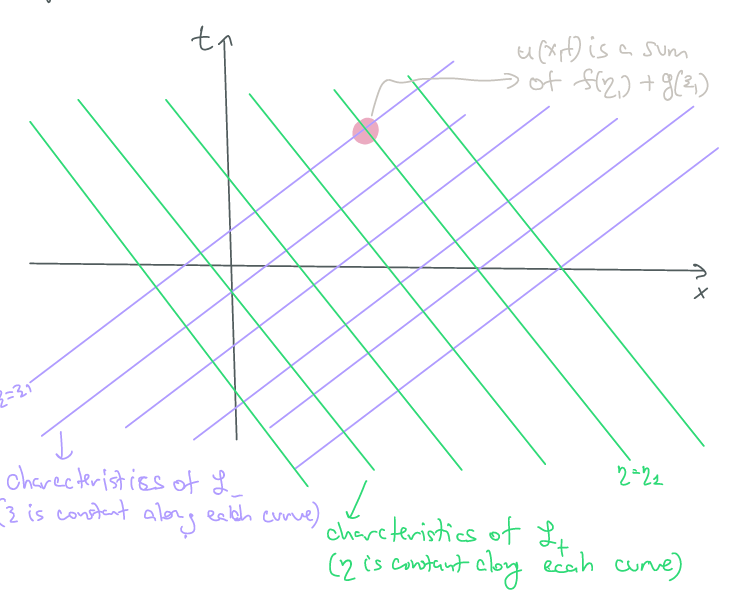 t
u(x,t) is a sum
of f(η₁) + g(ξ₁)
x
ξ=ξ₁
charecteristics of ℒ₋
(ξ is constant along eath curve)
η=η₂
charcteristics of ℒ₊
(η is constant along ecah curve)